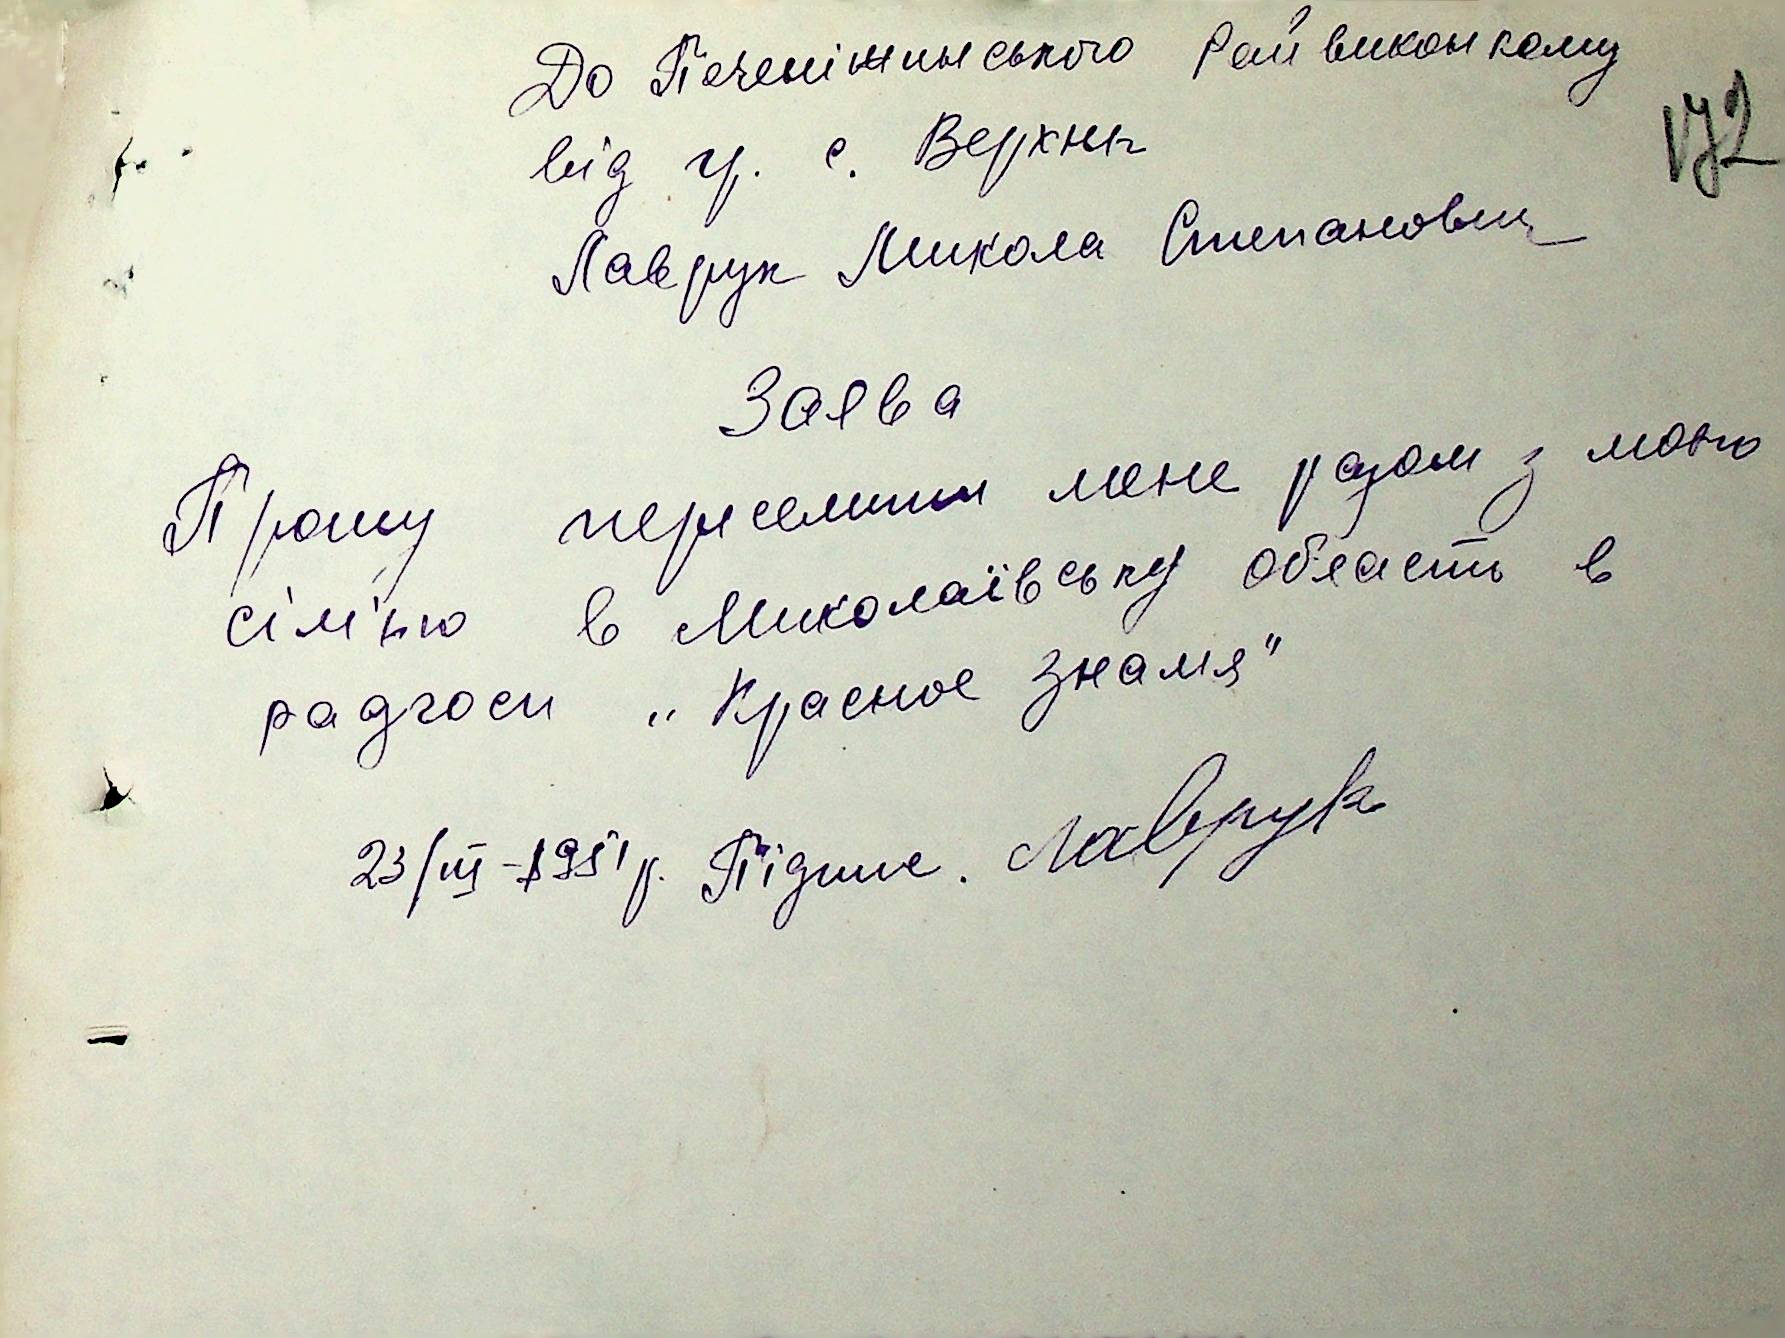 До Печеніжинського Райвиконкому
від гр. с. Верхнь
Лаврук Микола Степанович
Заява
Прошу переселити мене разом з моєю
сім'ью в Миколаївську область в
радгосп „Красное знамя"
23/III-1951 р. Підпис. Лаврук